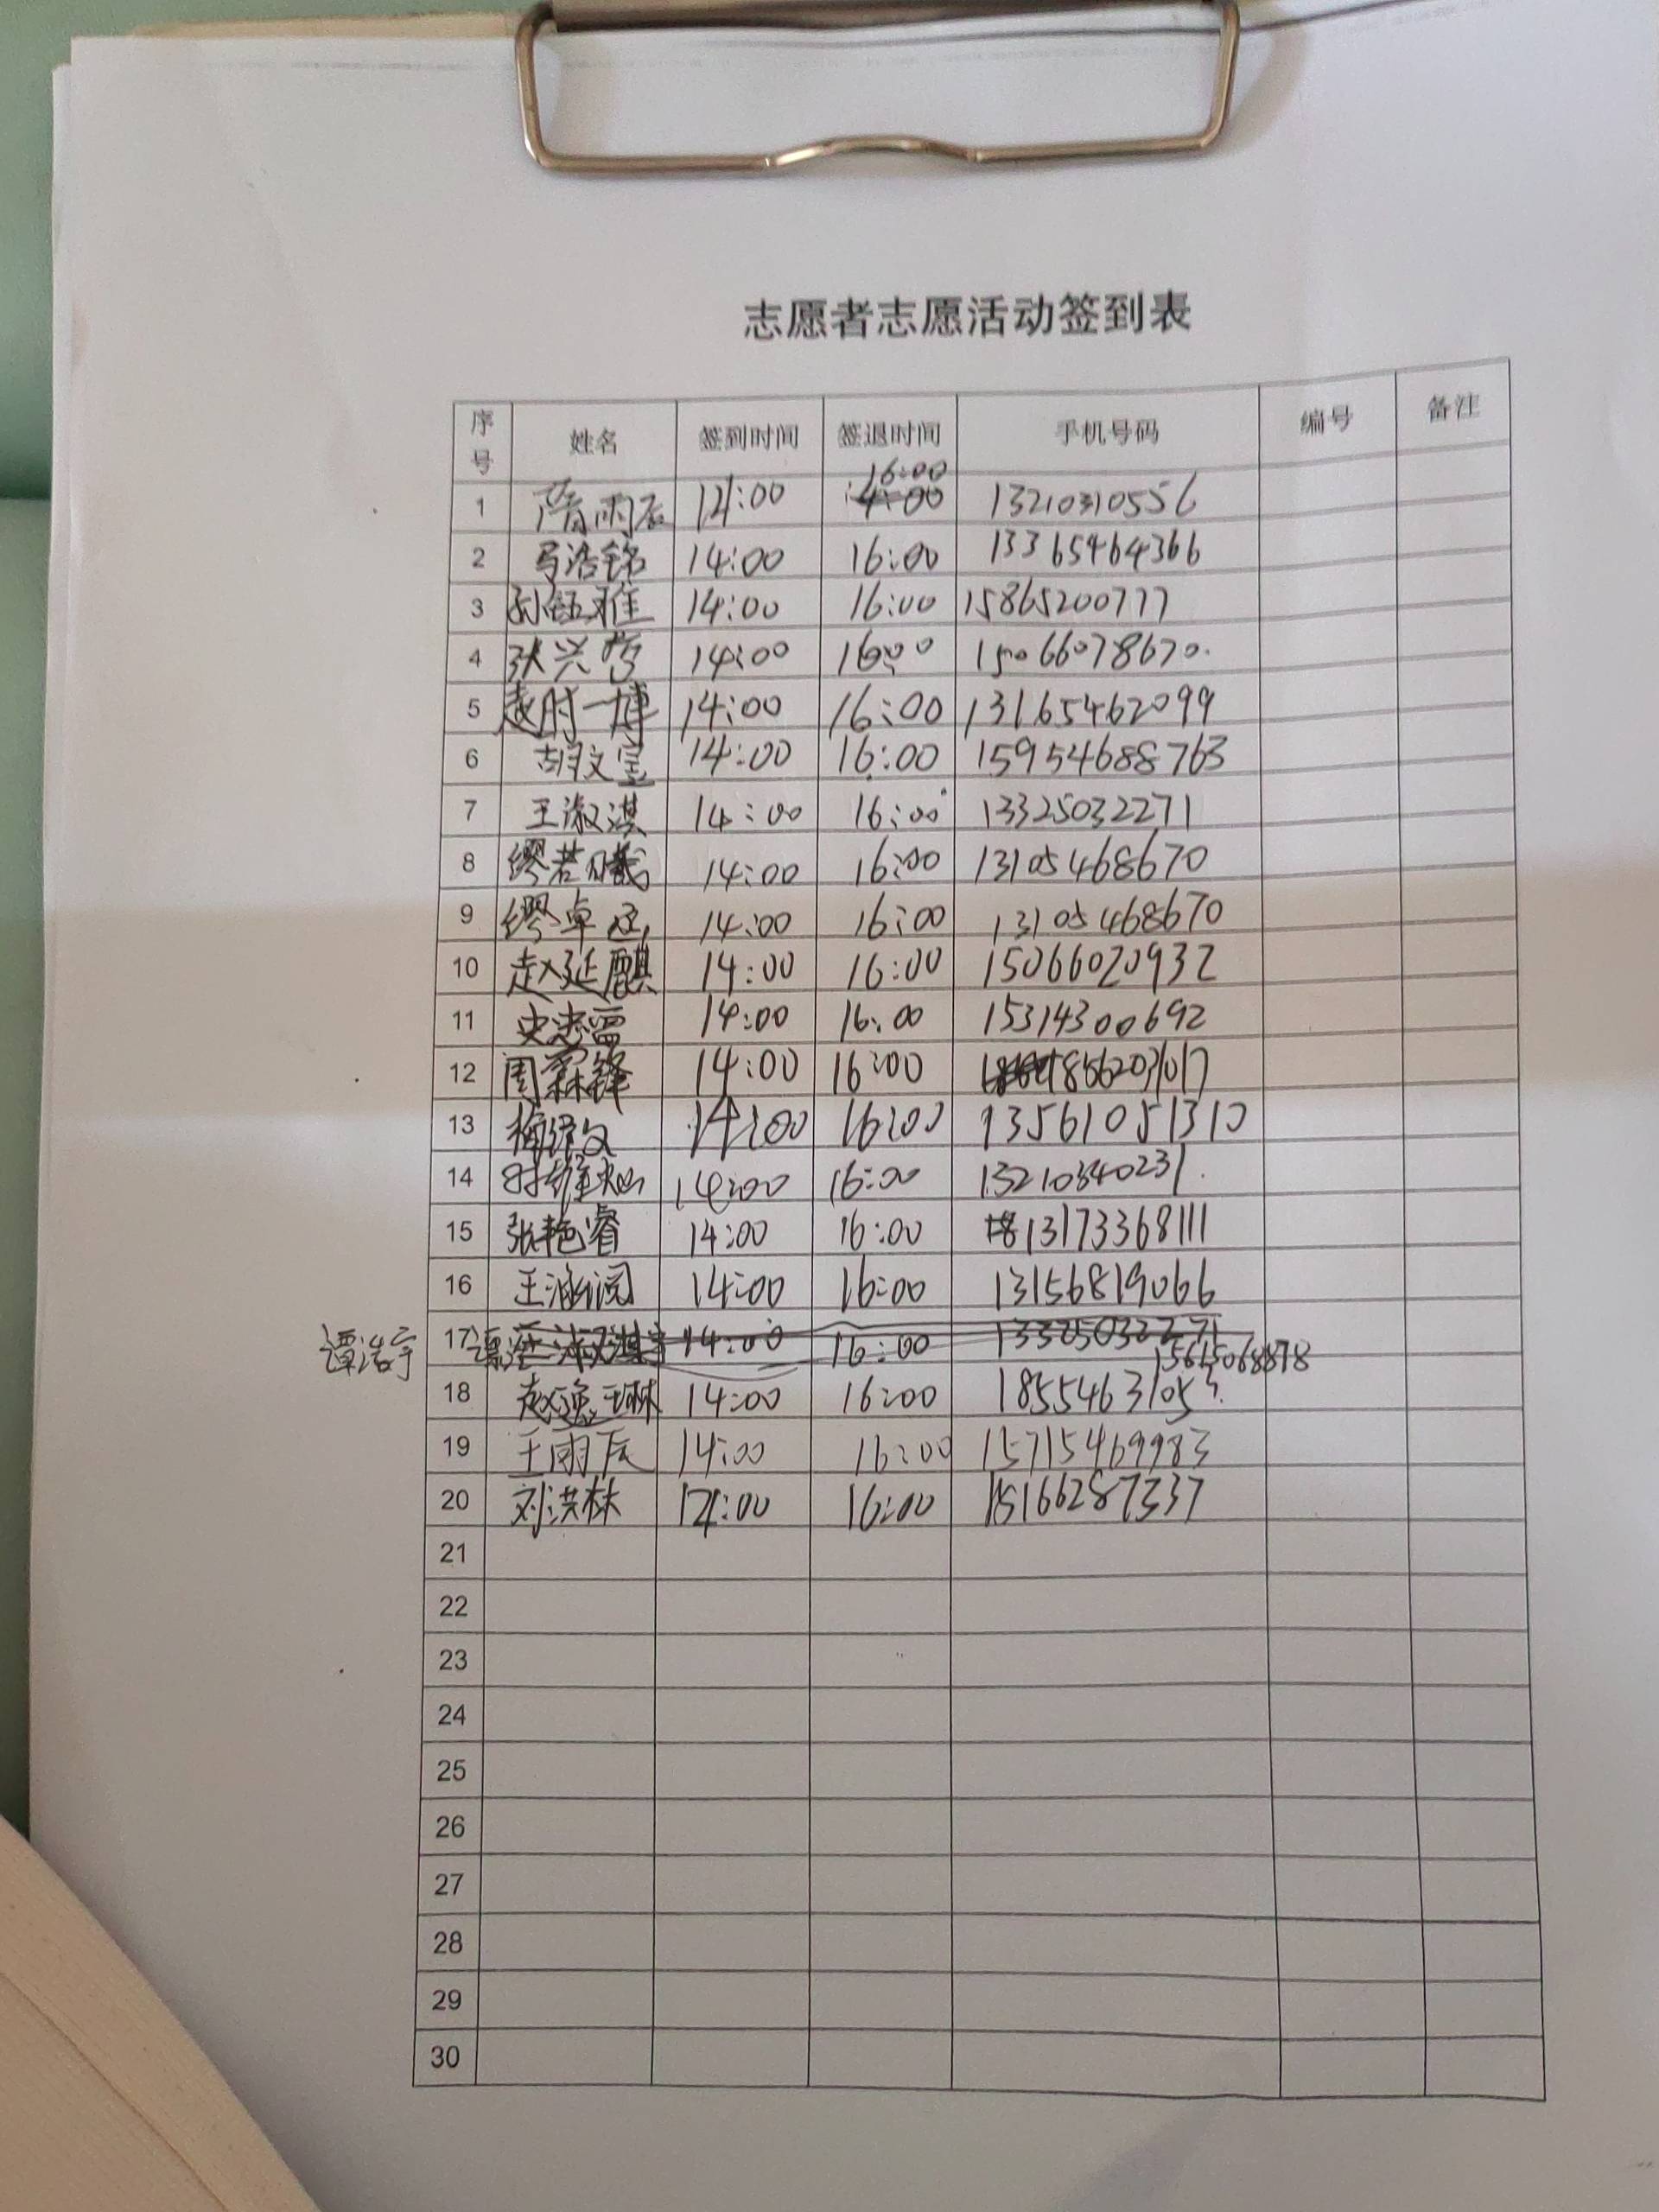 志愿者志愿活动签到表
序号 姓名 签到时间 签退时间 手机号码 编号 备注
1 隋雨辰 14:00 16:00 13210310556
2 马浩铭 14:00 16:00 13365464366
3 孙钰雅 14:00 16:00 15865200777
4 张兴哲 14:00 16:00 15066078670
5 赵时一博 14:00 16:00 13165462099
6 胡文宝 14:00 16:00 15954688763
7 王淑淇 14:00 16:00 13325032271
8 缪若曦 14:00 16:00 13105468670
9 缪卓 14:00 16:00 13105468670
10 赵延麒 14:00 16:00 15066020932
11 史 14:00 16:00 15314300692
12 周霖锋 14:00 16:00 18562031017
13 梅 14:00 16:00 13561051310
14 时 14:00 16:00 13210340231
15 张艳睿 14:00 16:00 13173368111
16 王涵阅 14:00 16:00 13156819066
谭浩宇 17 14:00 16:00 13325032271
15615068878
18 赵逸琳 14:00 16:00 18554631053
19 王雨辰 14:00 16:00 15715469983
20 刘洪林 14:00 16:00 15166287337
21
22
23
24
25
26
27
28
29
30